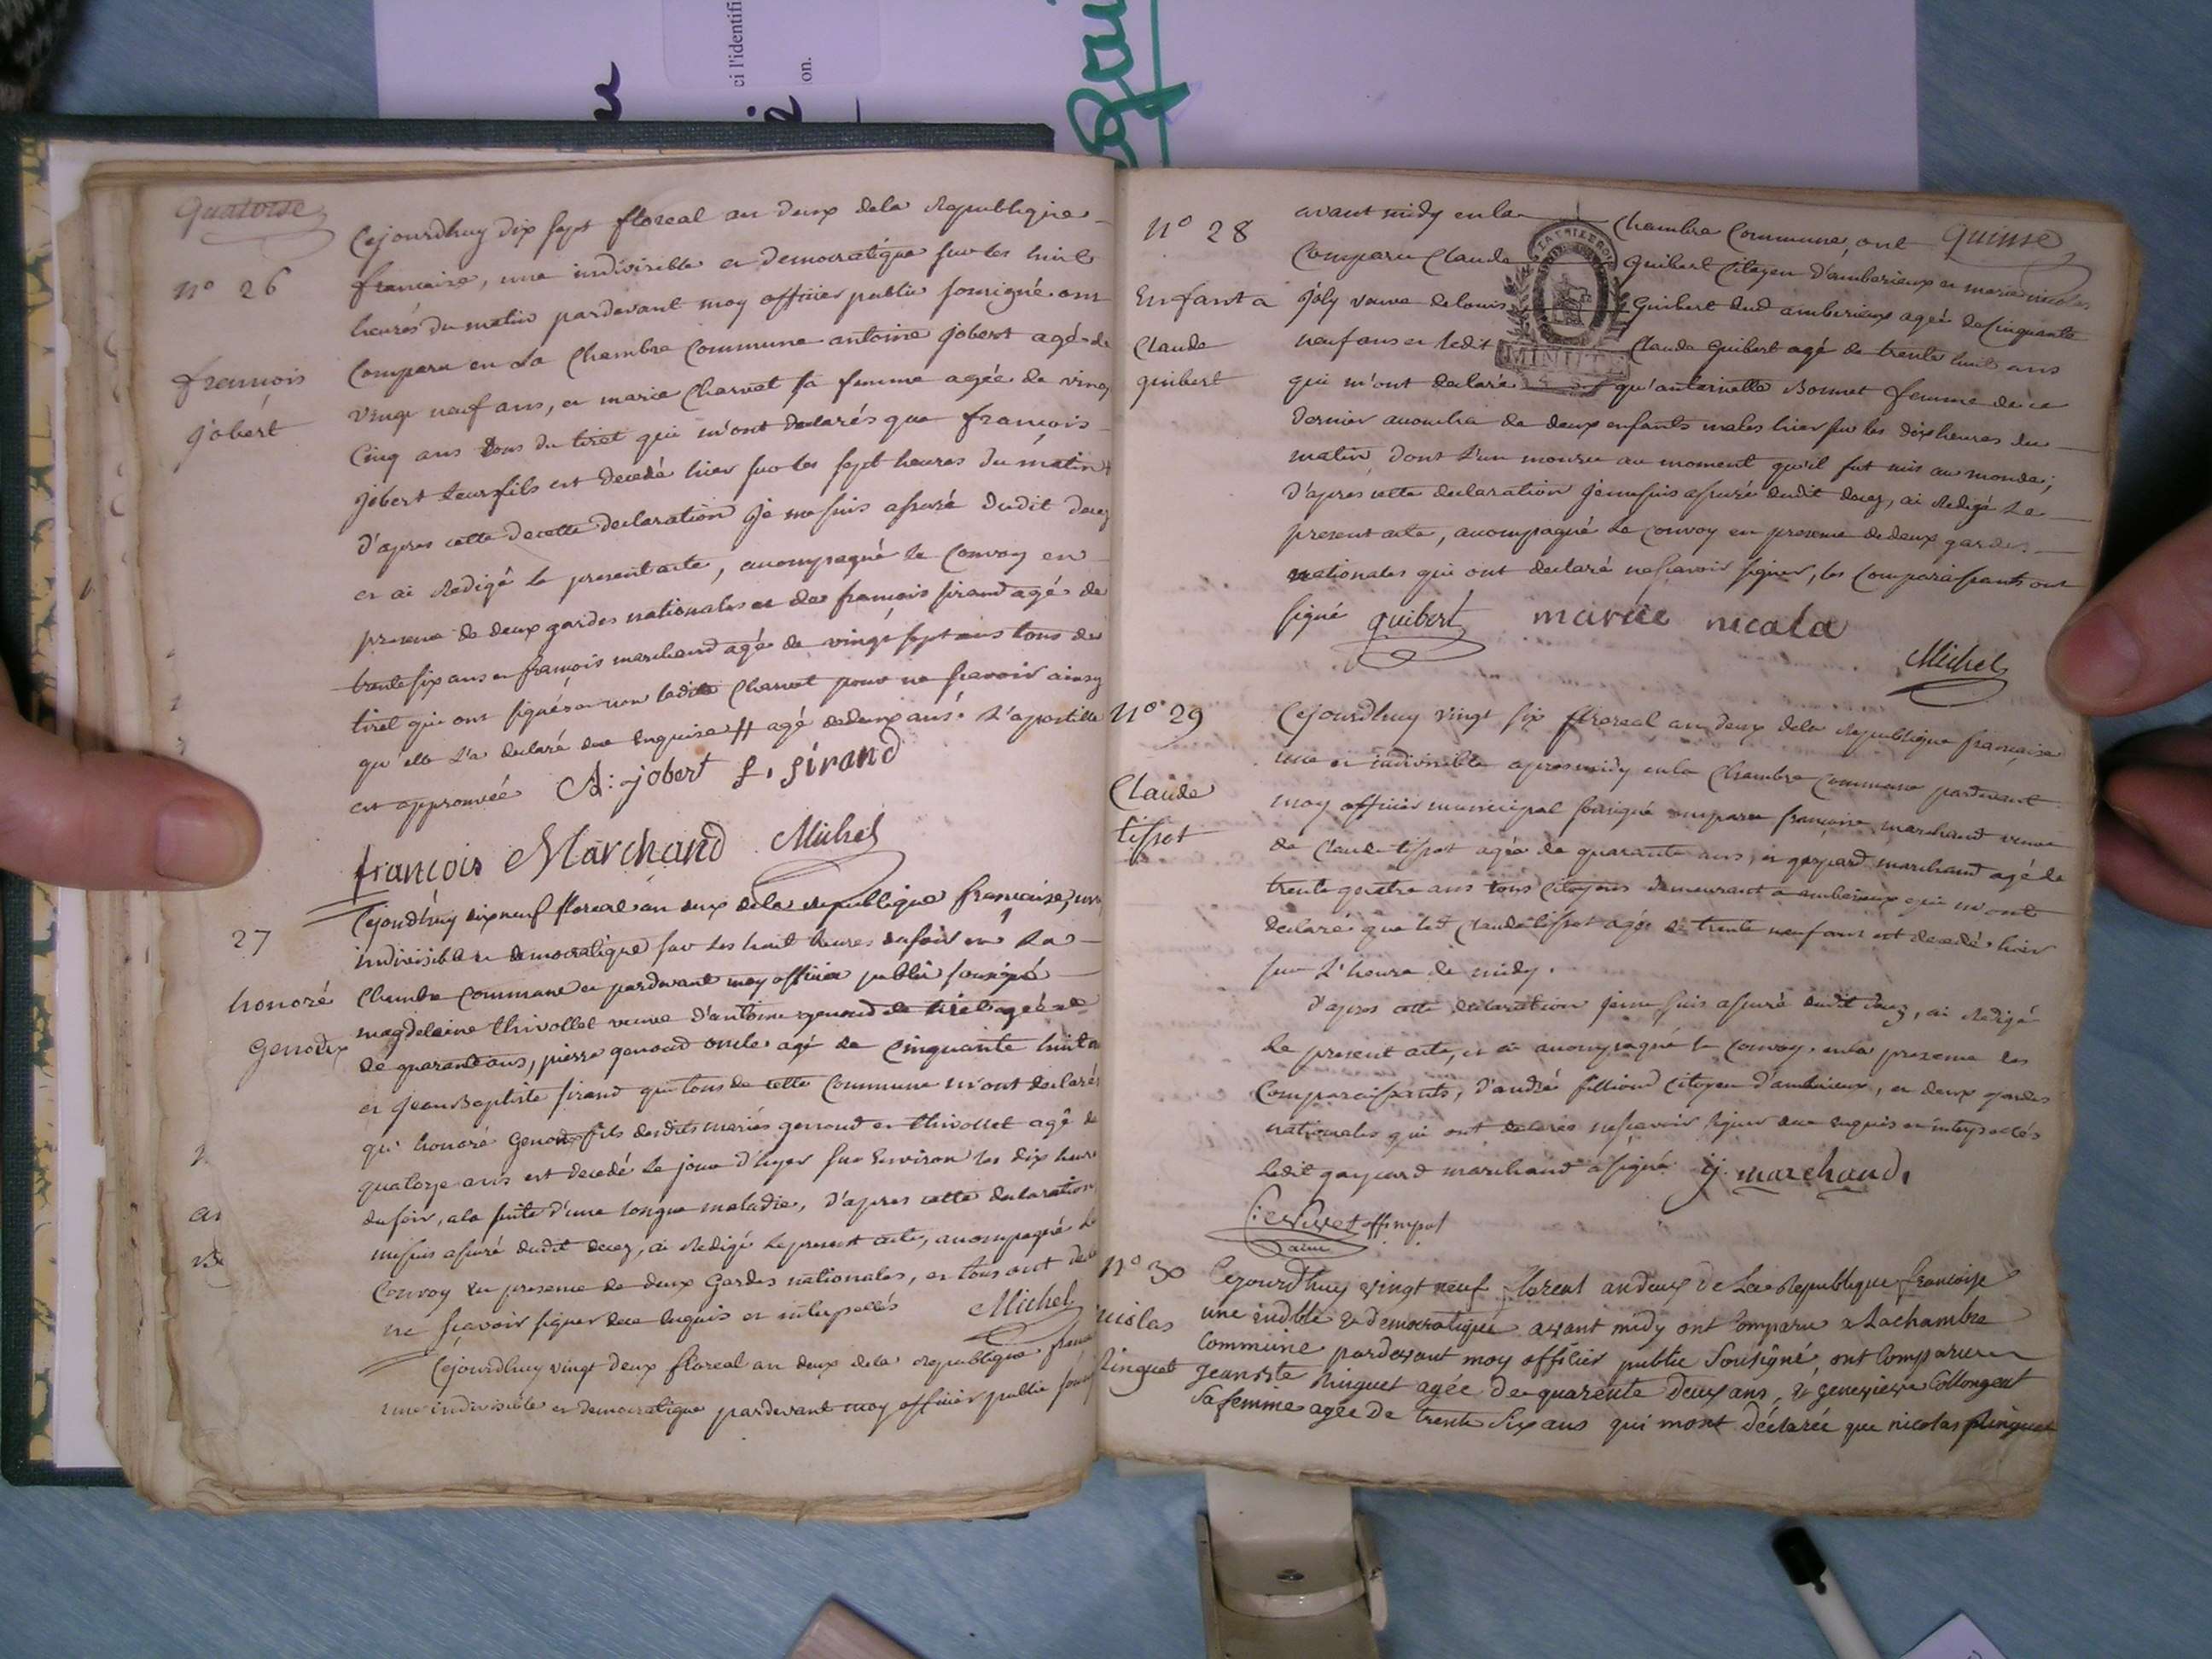 ci l'identifi
on.
quatorse
n° 26
françois
jobert
Cejourdhuy dix sept floreal an deux dela Republique
francaise, une indivisible et democratique sur les huit
heures du matin pardevant moy officier public sousigné ont
Comparu en La Chambre Commune antoine jobert agé de
vingt neuf ans, et marie Charvet sa femme agée de vingt
Cinq ans tous du tiret qui m'ont declarés que françois
jobert leur fils est decedé hier sur les sept heures du matin #
d'apres cette decette declaration je me suis assuré dudit deces
et ai Redigé le present acte, accompagné le Convoy en
presence de deux gardes nationales et de françois sirand agé de
trente six ans et françois marchand agé de vingt sept ans tous du
tiret qui ont signés et non ladite Charvet pour ne scavoir ainsy
qu'elle L'a declaré due enquise # agé dedeux ans. L'apostille
est approuvée A: jobert f. sirand
françois Marchand Michel
27
honoré
Genoux
Cejourdhuy dix neuf floreal an deux dela republique francaise, une
indivisible et democratique sur les huit heures dusoir en La
Chambre Commune et pardevant moy officier public sousigné
magdelaine thivollet veuve d'antoine genoud de tiret agée
de quarante ans, pierre genoud oncle agé de Cinquante huit
et jean Baptiste sirand qui tous de cette Commune m'ont declarés
qu'honoré Genoux fils desdits mariés genoud et thivollet agé de
quatorze ans est decedé le jour d'hyer sur Environ les dix heures
dusoir, ala suite d'une longue maladie, d'apres cette declaration
mesuis assuré dudit decez, ai Redigé lepresent acte, accompagné le
Convoy en presence de deux Gardes nationales, et tous ont
ne sçavoir signer dece enquis et interpellés Michel
Cejourdhuy vingt deux floreal an deux dela republique
une indivisible et democratique pardevant moy officier public
quinse
n° 28
Enfant a
Claude
guibert
avant midy en la Chambre Commune, ont
Comparu Claude Guibert Citoyen d'amberieux et marie nicolas
joly veuve de louis Guibert dud amberieux agée de Cinquante
neuf ans et ledit Claude Guibert agé de trente huit ans
MINUTE
qui m'ont declaré qu'antoinette Bonnet femme de ce
dernier accoucha de deux enfants males hier sur les dix heures du
matin, dont L'un mouru au moment qu'il fut mis au monde;
D'apres cette declaration jemesuis assuré dudit decez, ai Redigé Le
present acte, accompagné Le Convoy en presence dedeux gardes
nationales qui ont declaré ne scavoir signer, les Comparaissants ont
signé guibert marie nicala
Michel
n° 29
Claude
tissot
Cejourdhuy vingt six floreal an deux dela Republique francaise
une et indivisible apres midy en la Chambre Commune pardevant
moy officier municipal sousigné comparu francoise marchand veuve
de Claude tissot agée de quarante ans, et gaspard marchand agé de
trente quatre ans tous Citoyens demeurant a amberieux qui m'ont
declaré que led Claude tissot agé de trente neuf ans est decedé hier
sur L'heure de midy.
D'apres cette declaration jeme suis assuré dudit decez, ai Redigé
Le present acte, et ai accompagné le Convoy en la presence des
Comparaissants, d'andré fillioud Citoyen d'amberieux, et deux gardes
nationales qui ont declarés ne scavoir signer dece enquis et interpellés
ledit gaspard marchand a signé g. marchand.
n° 30
nicolas
Ringuet
Cejourdhuy vingt neuf floreal andeux De La Republique francoise
une indble & democratique avant midy ont Comparu a Lachambre
Commune pardevant moy officier public Sousigné, ont Comparu
Jean Bte Ringuet agée De quarente Deux ans, & genevieve Collonget
Sa femme agée De trente Six ans qui mont Déclarée que nicolas Ringuet